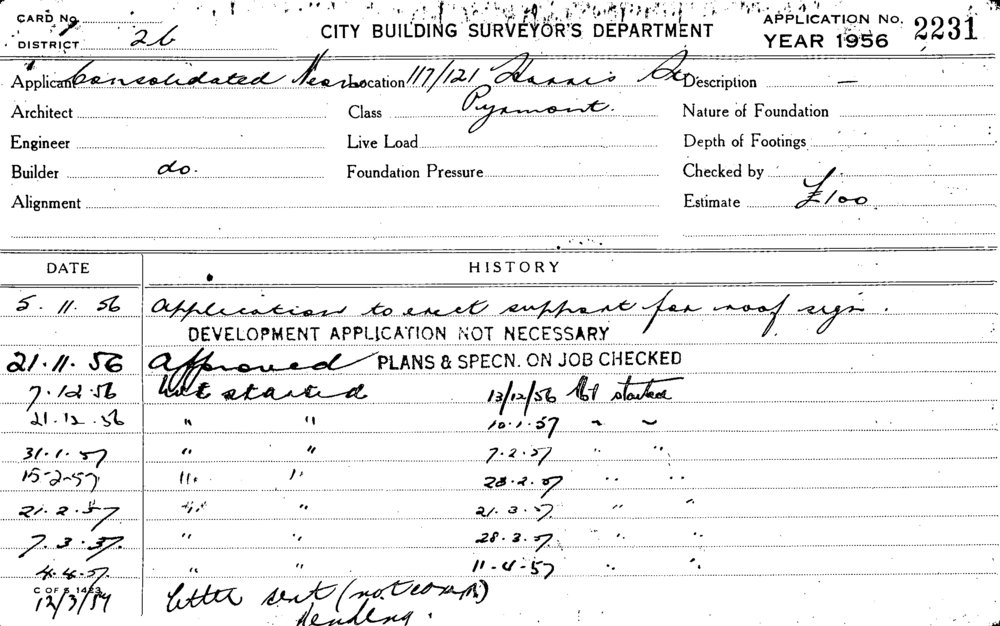 CARD No.
DISTRICT 26
CITY BUILDING SURVEYOR'S DEPARTMENT
APPLICATION No. 2231
YEAR 1956
Applicant Consolidated Neon Location 117/121 Harris St Description —
Architect Class Pyrmont. Nature of Foundation
Engineer Live Load Depth of Footings
Builder do. Foundation Pressure Checked by
Alignment Estimate £100
DATE HISTORY
5. 11. 56 Application to erect support for roof sign.
DEVELOPMENT APPLICATION NOT NECESSARY
21. 11. 56 Approved PLANS & SPECN. ON JOB CHECKED
7. 12. 56 Not started 13/12/56 Not started
21. 12. 56 " " 10.1.57 " "
31. 1. 57 " " 7.2.57 " "
15-2-57 " " 28.2.57 " "
21. 2. 57 " " 21.3.57 " "
7. 3. 57. " " 28.3.57 " "
4.4.57. " " 11-4-57 " "
C OF S 1423
12/3/59 letter sent (not comm)
pending.